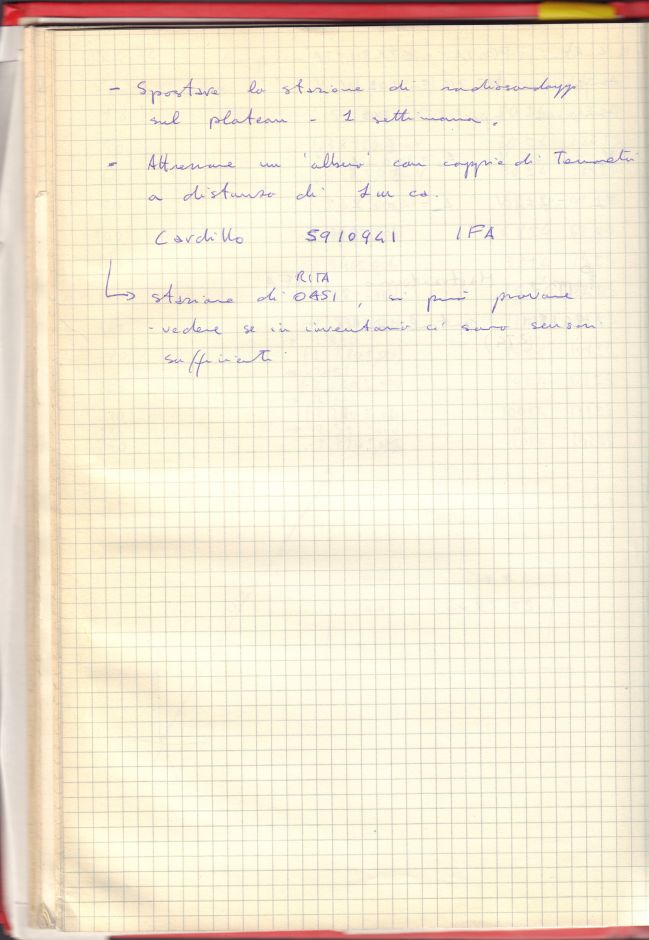 - Spostare la stazione di radiosondaggi
sul plateau - 1 settimana.
- Attrezzare un 'albero' con coppie di Termometri
a distanza di 1 m ca.
Cardillo 5910941 IFA
RITA
↳ stazione di OASI, si può provare
- vedere se in inventario ci sono sensori
sufficienti